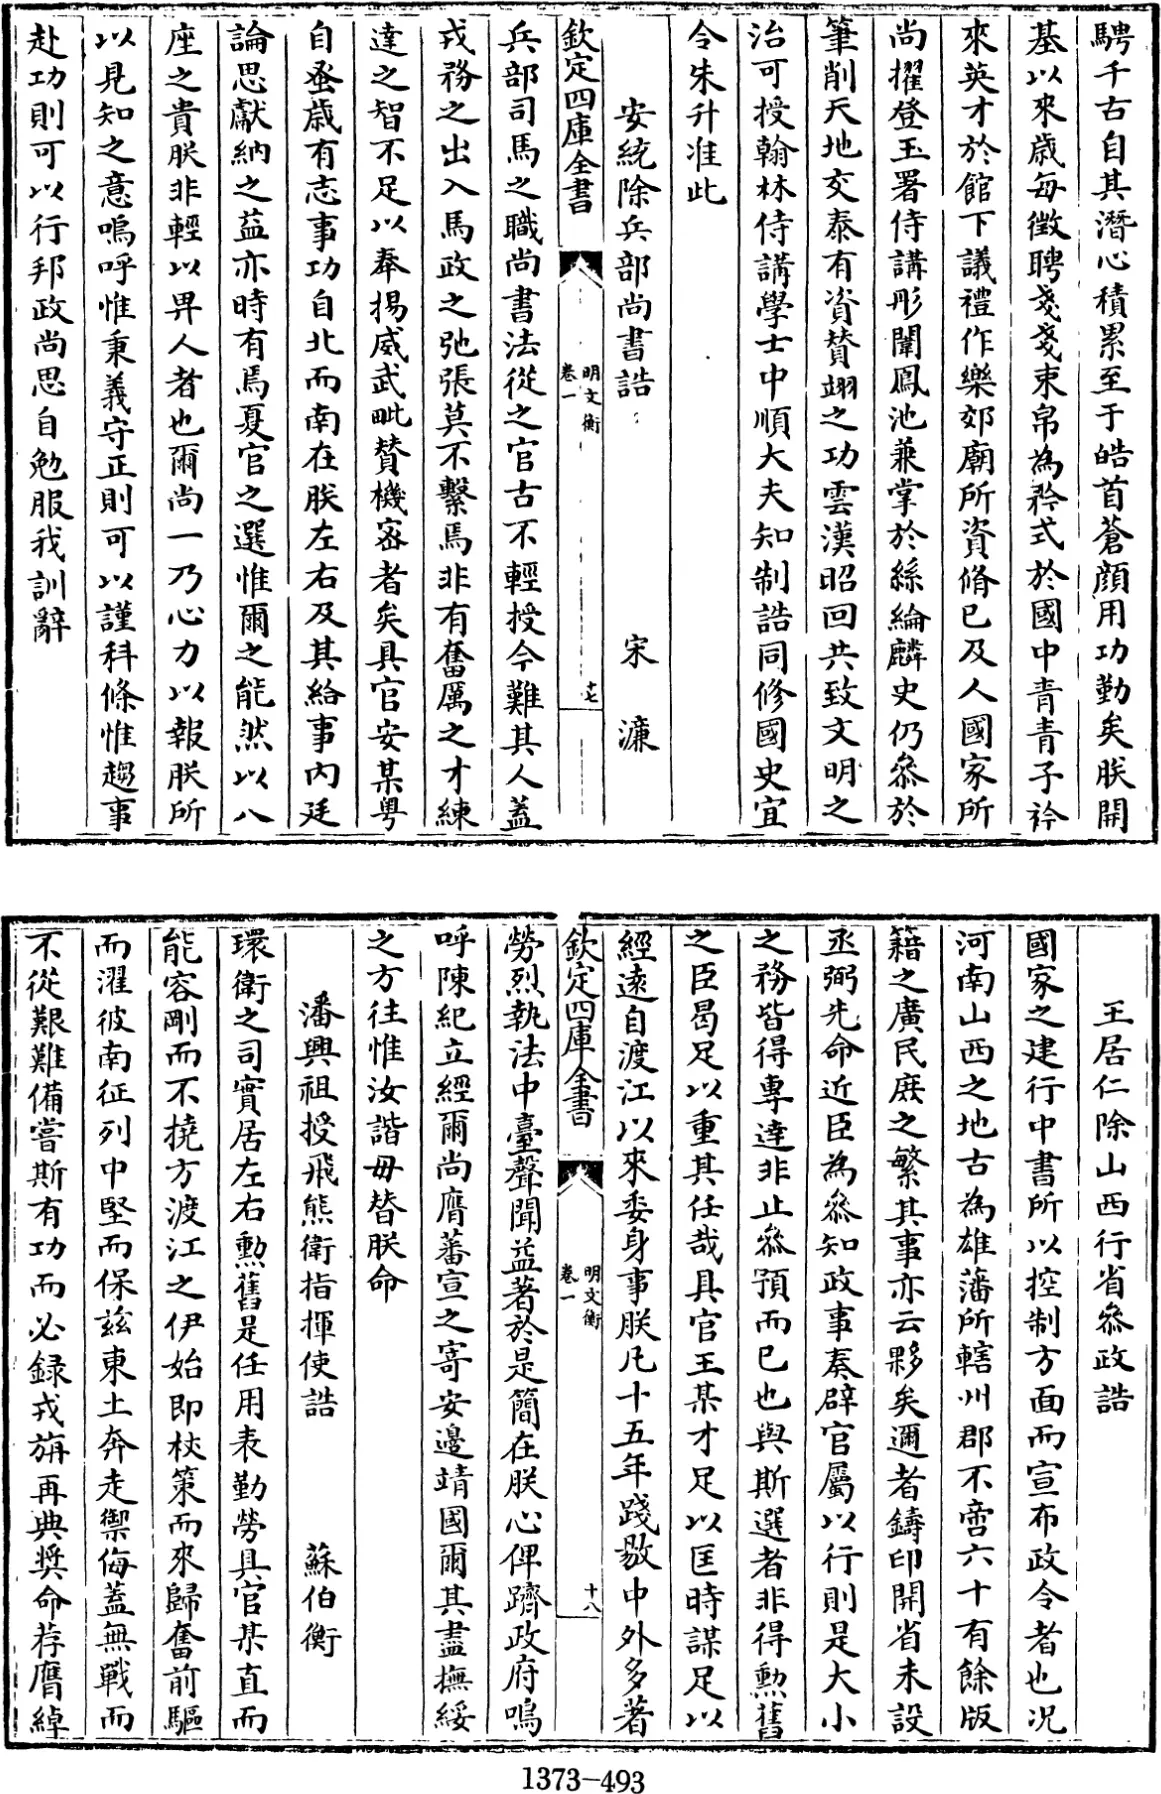 騁千古自其潛心積累至于皓首蒼顔用功勤矣朕開
基以來歳每徵聘戔戔束帛為矜式於國中青青子衿
來英才於館下議禮作樂郊廟所資脩已及人國家所
尚擢登玉署侍講彤闈鳳池兼掌於絲綸麟史仍叅於
筆削天地交泰有資賛翊之功雲漢昭回共致文明之
治可授翰林侍講學士中順大夫知制誥同修國史宜
令朱升准此
安統除兵部尚書誥 宋濂
欽定四庫全書 明文衡 卷一 十七
兵部司馬之職尚書法從之官古不輕授今難其人蓋
戎務之出入馬政之弛張莫不繫焉非有奮厲之才練
達之智不足以奉揚威武毗賛機宻者矣具官安某粤
自蚤歳有志事功自北而南在朕左右及其給事内廷
論思獻納之益亦時有焉夏官之選惟爾之能然以八
座之貴朕非輕以畀人者也爾尚一乃心力以報朕所
以見知之意嗚呼惟秉義守正則可以謹科條惟趨事
赴功則可以行邦政尚思自勉服我訓辭
王居仁除山西行省叅政誥
國家之建行中書所以控制方面而宣布政令者也况
河南山西之地古為雄藩所轄州郡不啻六十有餘版
籍之廣民庶之繁其事亦云夥矣邇者鑄印開省未設
丞弼先命近臣為叅知政事奏辟官屬以行則是大小
之務皆得專達非止叅預而已也與斯選者非得勲舊
之臣曷足以重其任哉具官王某才足以匡時謀足以
經逺自渡江以來委身事朕凡十五年踐敭中外多著
欽定四庫全書 明文衡 卷一 十八
勞烈執法中臺聲聞益著於是簡在朕心俾躋政府嗚
呼陳紀立經爾尚膺蕃宣之寄安邊靖國爾其盡撫綏
之方往惟汝諧毋替朕命
潘興祖授飛熊衛指揮使誥 蘇伯衡
環衛之司實居左右勲舊是任用表勤勞具官某直而
能容剛而不撓方渡江之伊始即杖策而來歸奮前驅
而濯彼南征列中堅而保兹東土奔走禦侮蓋無戰而
不從艱難備嘗斯有功而必録戎旃再典奬命荐膺綽
1373-493